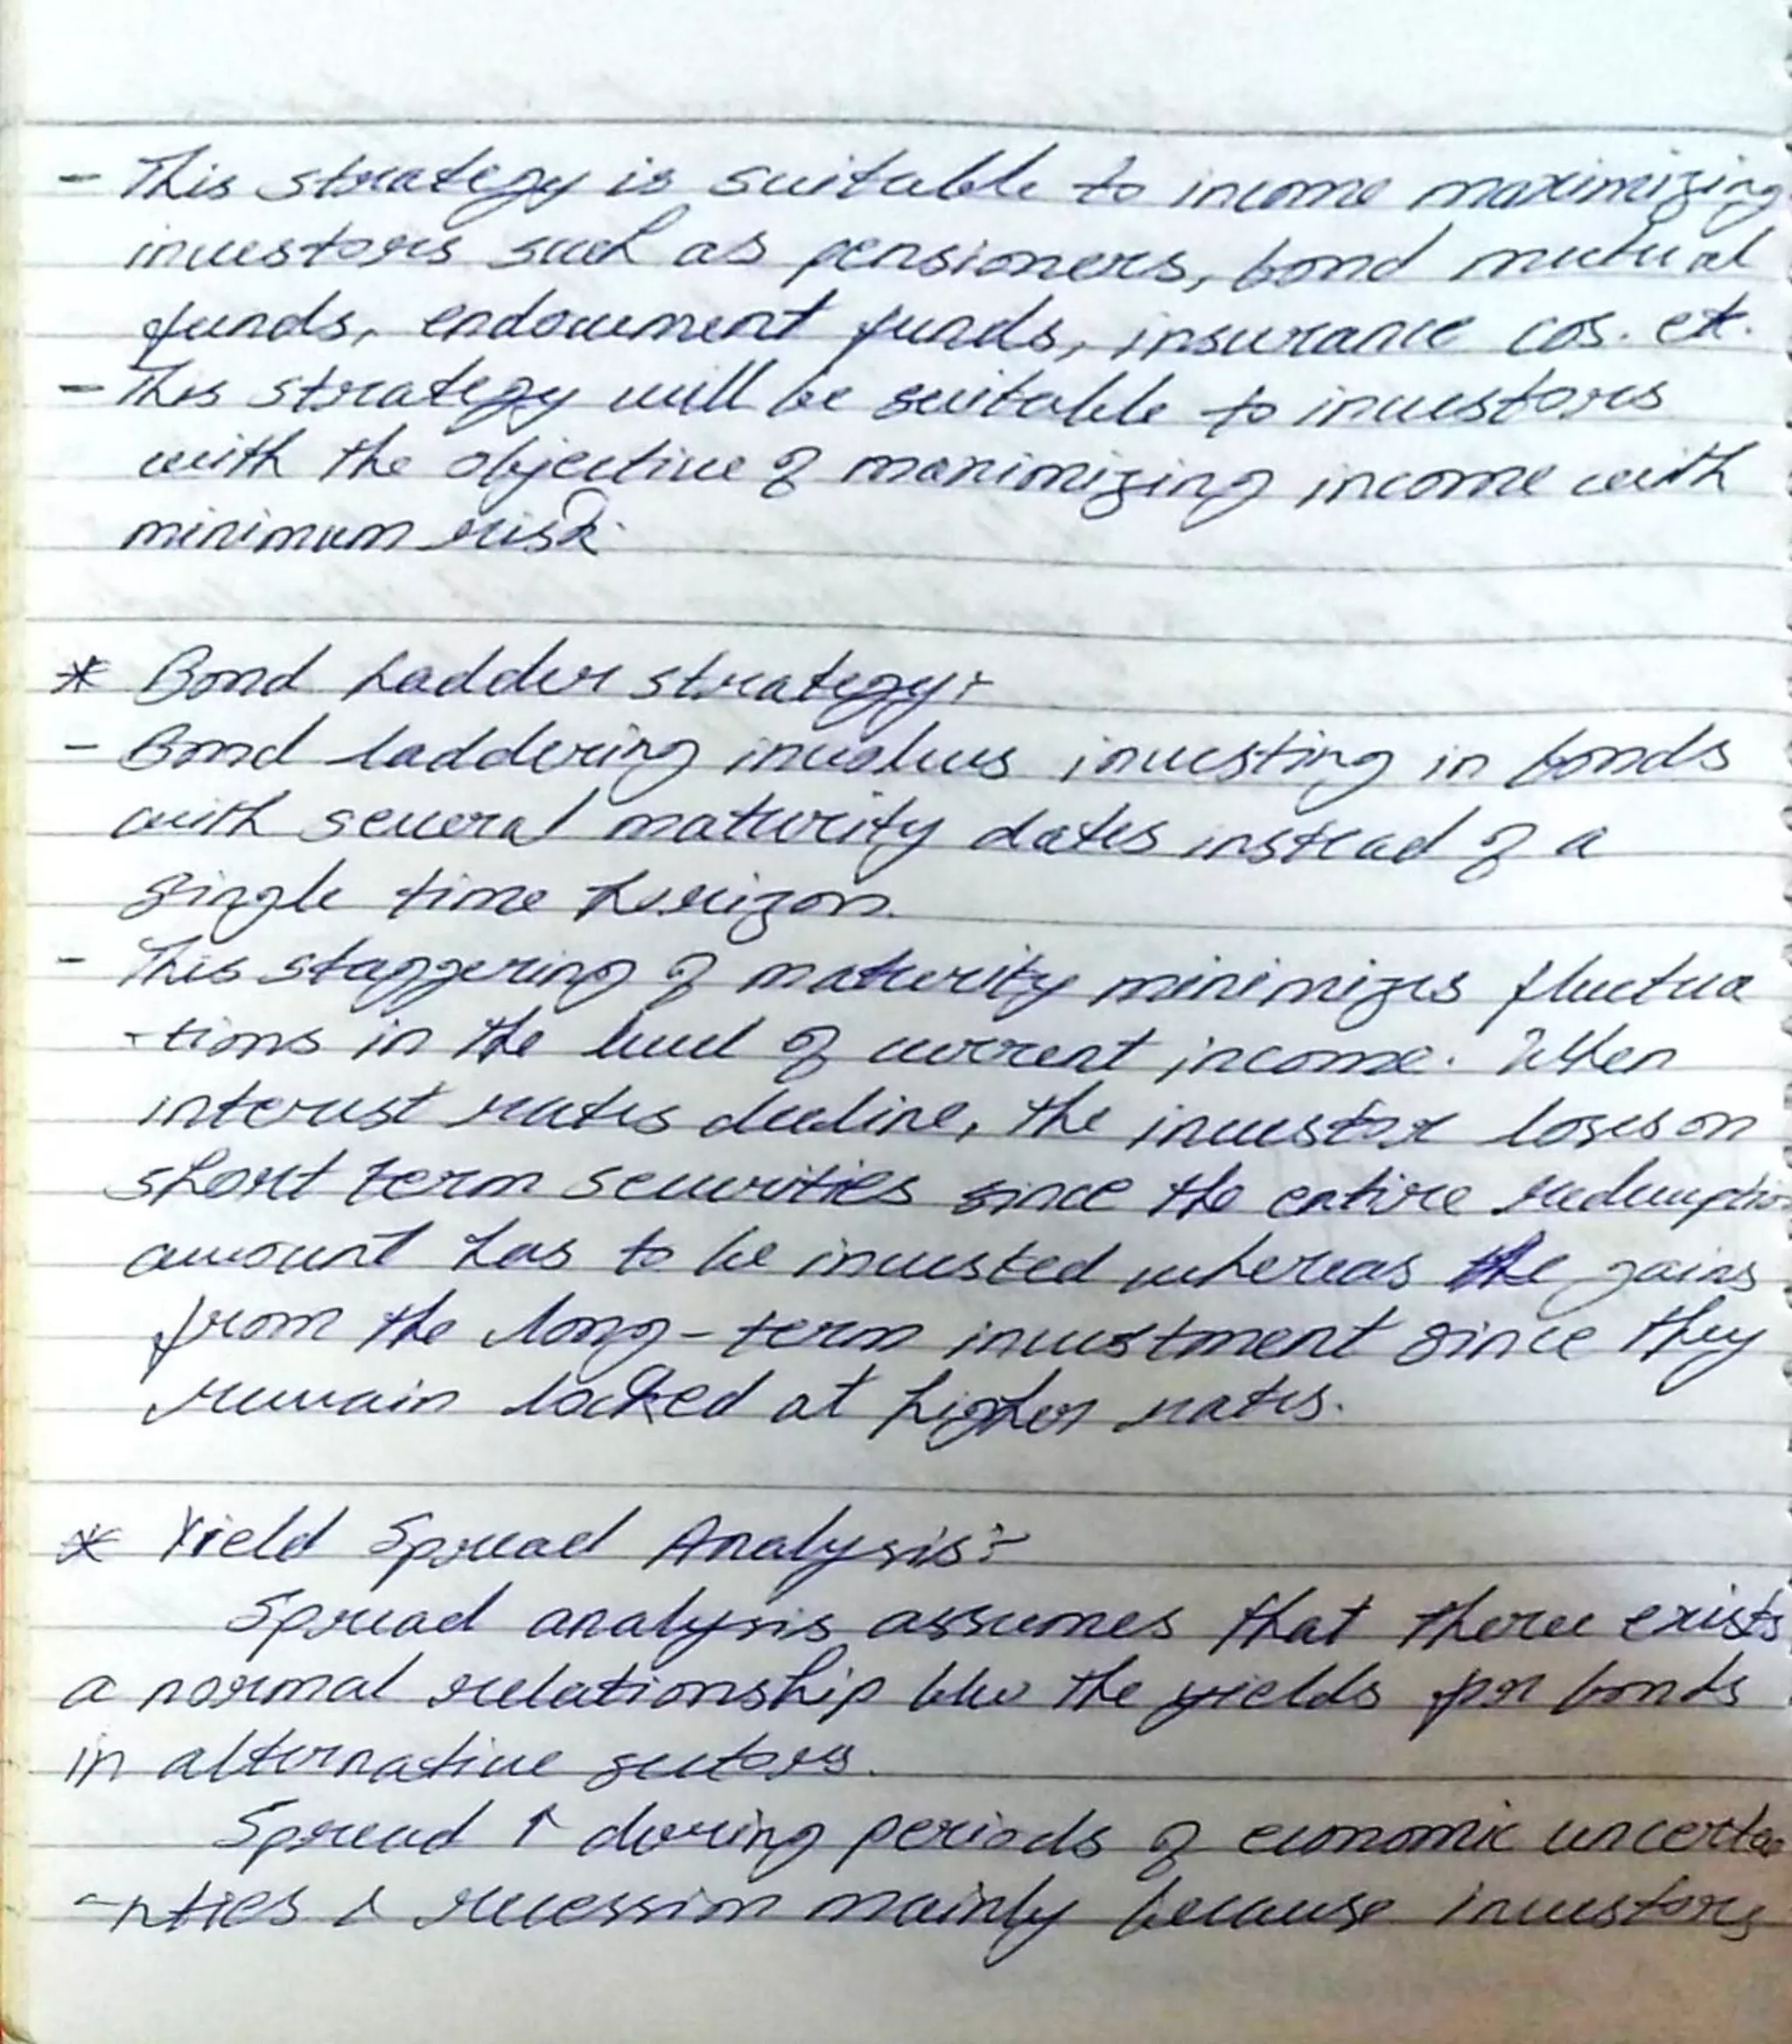 - This strategy is suitable to income maximizing
investors such as pensioners, bond mutual
funds, endowment funds, insurance cos. etc.
- This strategy will be suitable to investors
with the objective of maximizing income with
minimum risk.
* Bond Ladder strategy:-
- Bond laddering involves investing in bonds
with several maturity dates instead of a
single time horizon.
- This staggering of maturity minimizes fluctua
-tions in the level of current income. When
interest rates decline, the investor loses on
short term securities since the entire redemptio
amount has to be invested whereas the gains
from the long-term investment since they
remain locked at higher rates.
* Yield Spread Analysis:-
Spread analysis assumes that there exists
a normal relationship b/w the yields for bonds
in alternative sectors.
Spread ↑ during periods of economic uncertai
-nties & recession mainly because investors